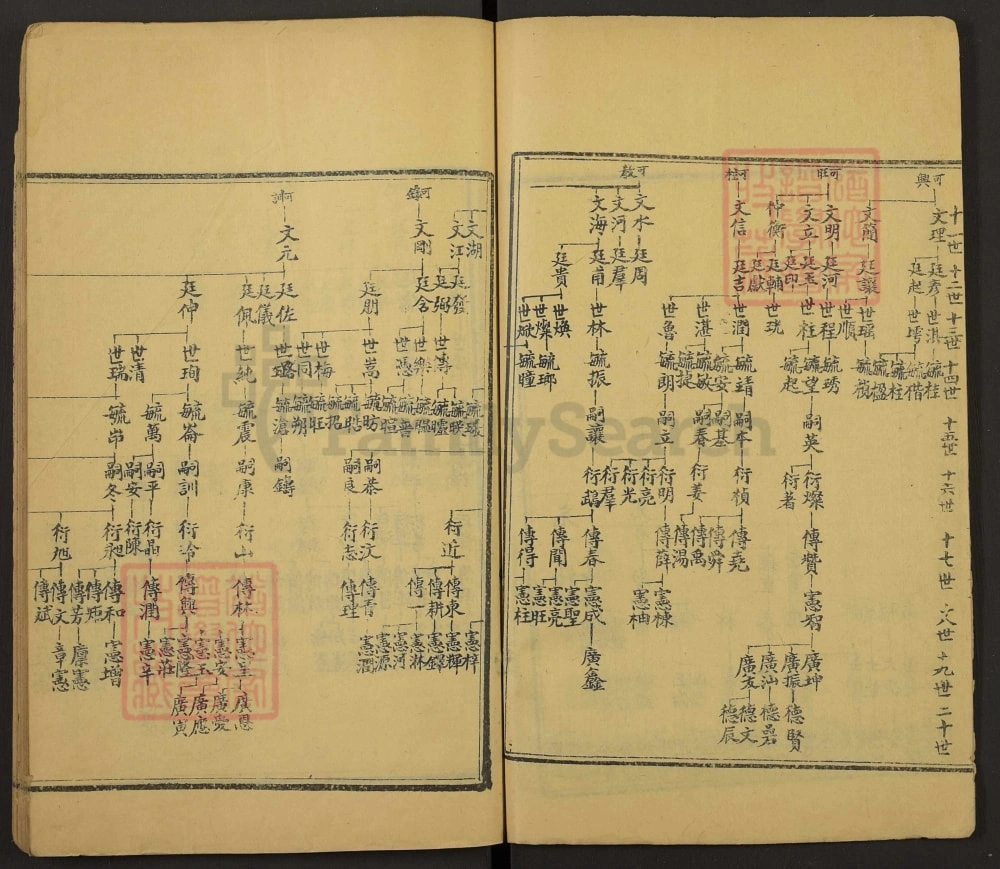 十一世 十二世 十三世 十四世 十五世 十六世 十七世 十八世 十九世 二十世
可興
文理 廷秀 世淇 毓桂
毓楷
廷起 世塄 毓柱
毓楹
文蘭 廷讓 世瑶
世順
可旺
文明 廷河 世程 毓琇
文立 廷玉 世柱 毓望 嗣英 衍燦 傳瓚 憲智 廣坤
廣振 德賢
廣汕 德
廣友 德文
德辰
衍者
毓起
廷印
仲衡 廷輔 世珖
廷獻
可柱
文信 廷吉 世潤 毓靖 嗣本 衍楨 傳堯
傳舜
傳禹
傳湯
毓安 嗣基
世湛 毓敏 嗣春 衍姜
毓捷
世魯 毓朗 嗣立 衍明 傳薛 憲棟
憲柚
衍亮
衍光
衍羣
可教
文水 廷周
文河 廷羣
文海 廷甫 世林 毓振 嗣讓 衍鵠 傳春 憲成 廣鑫
憲聖
傳聞 憲亮
憲旺
傳得 憲柱
廷貴 世煥
世燦 毓瑯
世焮 毓瞳
文湖
文江 廷發
廷弼 世專
毓瑗
衍近 傳東 憲梓
憲輝
傳耕 憲鐸
傳一 憲林
憲河
憲源
可鐱
文剛 廷含 世樂 毓瑞
世憑 毓普
毓暄
廷朋 世嵩 毓昉 嗣恭 衍汶 傳青 憲潤
毓晧 嗣庭 衍志 傳理
毓招
世梅 毓旺
世同 毓朔
文元 廷佐 世璐 毓滄 嗣鑄
廷儀
廷佩 世純 毓震 嗣康 衍山 傳林 憲宝 廣恩
憲安 廣愛
廷伸 世珣 毓崙 嗣訓 衍冷 傳興
憲玉 廣應
憲隆 廣寅
憲莊
世清 毓萬 嗣平 衍晶 傳潤 憲辛
嗣安 衍陳
世瑞 毓峁 嗣冬 衍昶 傳和 憲增
傳熙
傳芳 麇憲
衍旭 傳文 章憲
傳斌
FamilySearch